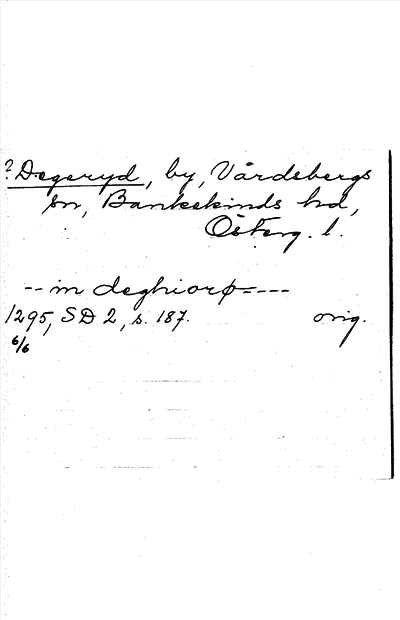 ? Degeryd, by, Vårdsbergs
sn, Bankekinds hd,
Österg. l.
-- in deghiorþ= ---
1295, SD 2, s. 187. orig.
6/6